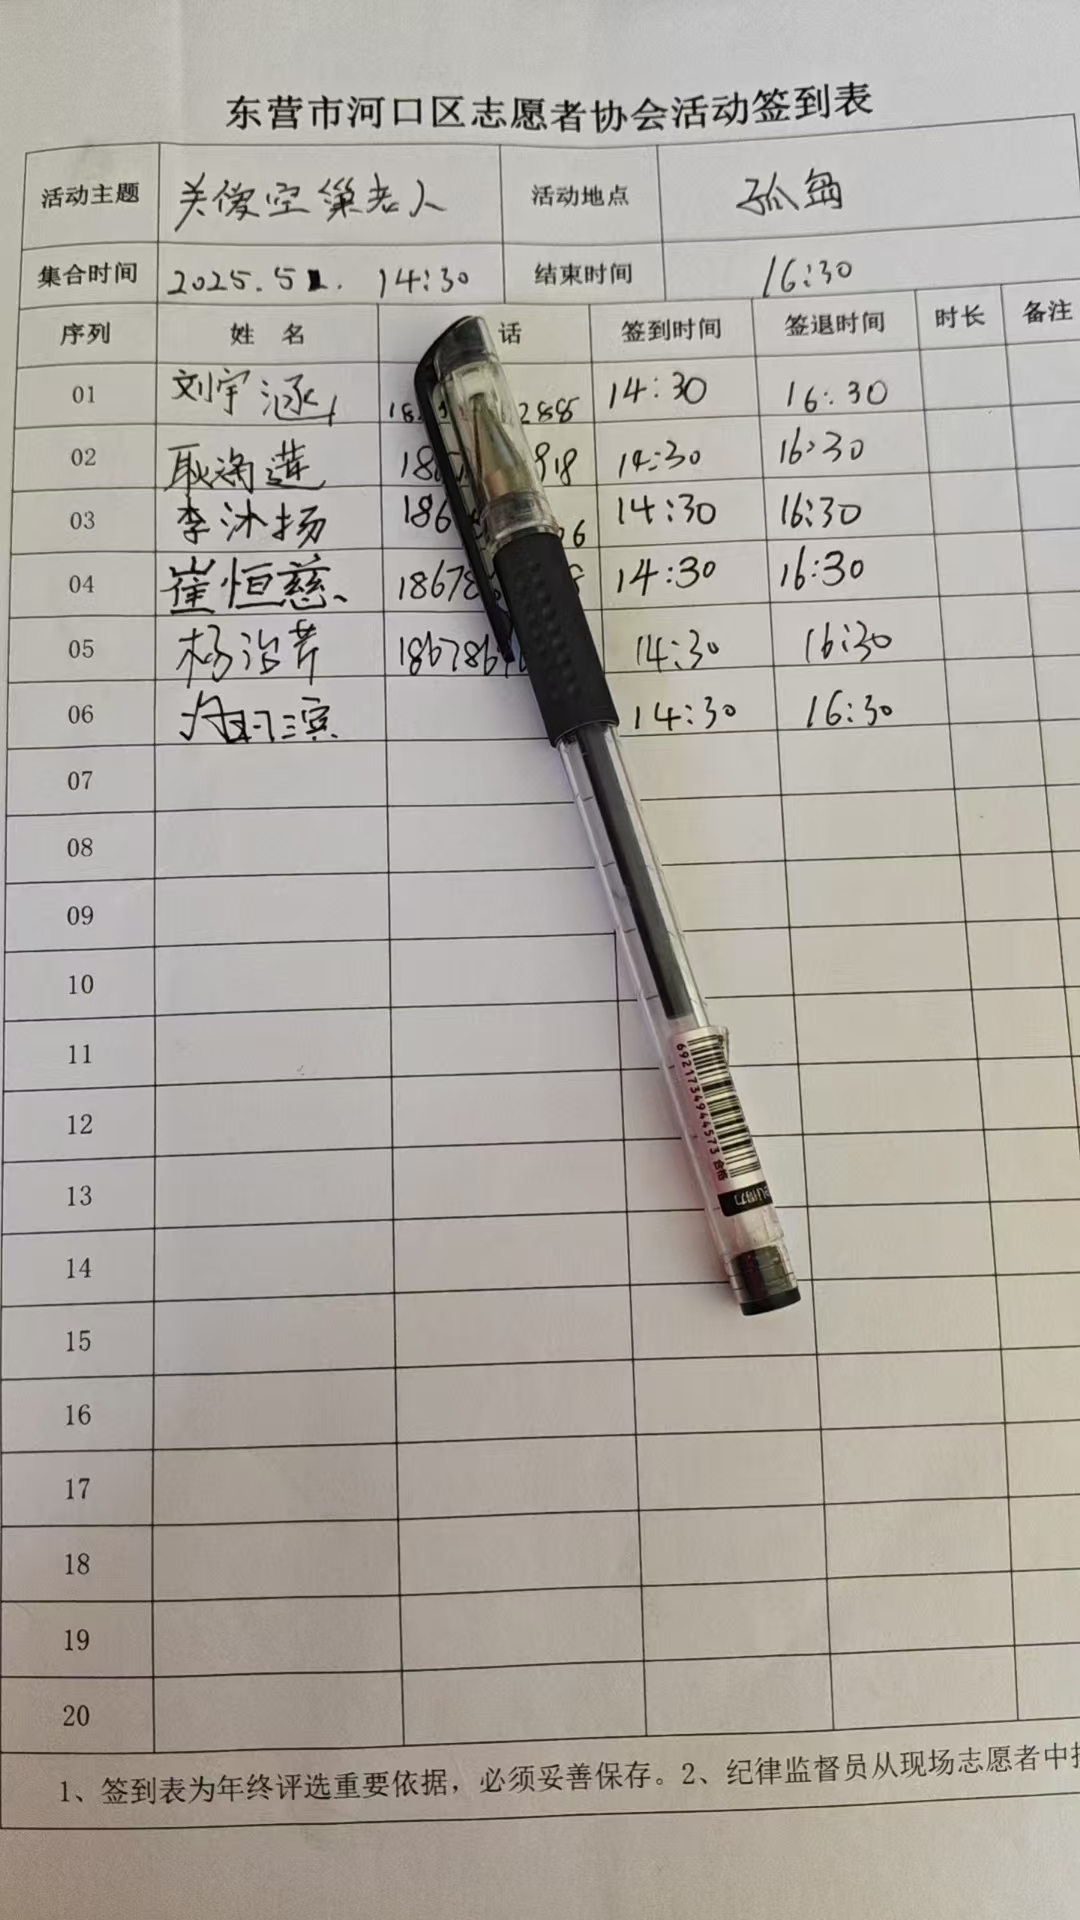 东营市河口区志愿者协会活动签到表
活动主题 关爱空巢老人 活动地点 孤岛
集合时间 2025.5 14:30 结束时间 16:30
序列 姓名 话 签到时间 签退时间 时长 备注
01 刘宇涵 14:30 16:30
02 耿 莲 14:30 16:30
03 李沐扬 186 14:30 16:30
04 崔恒慈 18678 14:30 16:30
05 杨治芹 186786 14:30 16:30
06 14:30 16:30
07
08
09
10
11
12
13
14
15
16
17
18
19
20
1、签到表为年终评选重要依据，必须妥善保存。2、纪律监督员从现场志愿者中
6921734944573 合格
得力